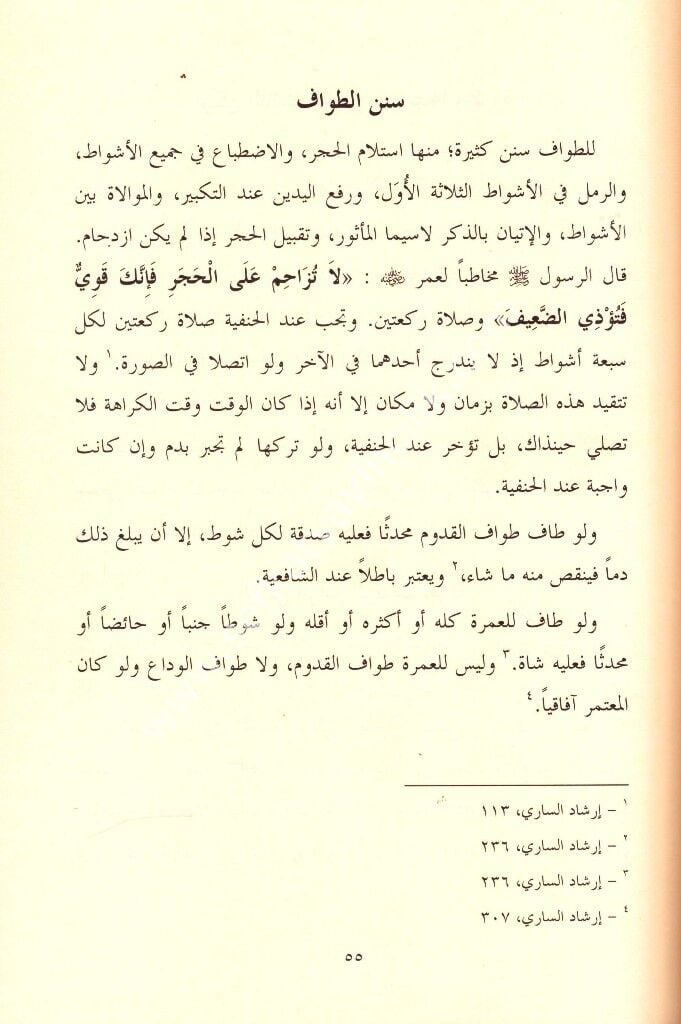 سنن الطواف
للطواف سنن كثيرة؛ منها استلام الحجر، والاضطباع في جميع الأشواط،
والرمل في الأشواط الثلاثة الأُوَل، ورفع اليدين عند التكبير، والموالاة بين
الأشواط، والإتيان بالذكر لاسيما المأثور، وتقبيل الحجر إذا لم يكن ازدحام.
قال الرسول ﷺ مخاطباً لعمر ﷜ : «لاَ تُزَاحِمْ عَلَى الْحَجَرِ فَإِنَّكَ قَوِيٌّ
فَتُؤْذِي الضَّعِيفَ» وصلاة ركعتين. وتجب عند الحنفية صلاة ركعتين لكل
سبعة أشواط إذ لا يندرج أحدهما في الآخر ولو اتصلا في الصورة.١ ولا
تتقيد هذه الصلاة بزمان ولا مكان إلا أنه إذا كان الوقت وقت الكراهة فلا
تصلي حينذاك، بل تؤخر عند الحنفية، ولو تركها لم تجبر بدم وإن كانت
واجبة عند الحنفية.
ولو طاف طواف القدوم محدثًا فعليه صدقة لكل شوط، إلا أن يبلغ ذلك
دماً فينقص منه ما شاء،٢ ويعتبر باطلاً عند الشافعية.
ولو طاف للعمرة كله أو أكثره أو أقله ولو شوطاً جنباً أو حائضاً أو
محدثًا فعليه شاة.٣ وليس للعمرة طواف القدوم، ولا طواف الوداع ولو كان
المعتمر آفاقياً.٤
١ – إرشاد الساري، ١١٣
٢ – إرشاد الساري، ٢٣٦
٣ – إرشاد الساري، ٢٣٦
٤ – إرشاد الساري، ٣٠٧
٥٥